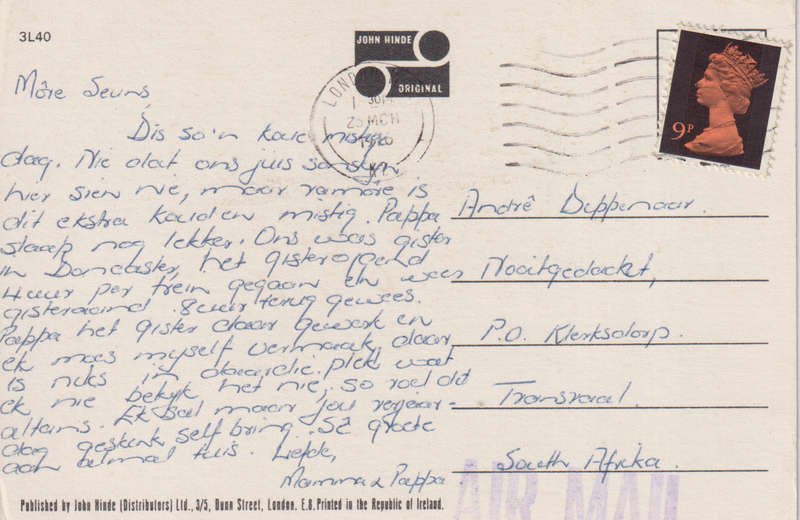 3L40
JOHN HINDE
ORIGINAL
LOND
1976
9P
Môre Seuns,
Dis so'n koue mistige
dag. Nie dat ons juis son
hier sien nie, maar vanmôre is
dit ekstra koud en mistig. Pappa
slaap nog lekker. Ons was gister
in Doncaster, het gisteroggend
4 uur per trein gegaan en was
gisteraand 8 uur terug gewees.
Pappa het gister daar gewerk en
ek moes myself vermaak, daar
is niks in daardie plek wat
ek nie bekyk het nie, so voel dit
altans. Ek sal maar jou verjaar-
dag geskenk self bring. Sê groete
aan almal tuis. Liefde,
Mamma & Pappa.
André Dippenaar.
Nooitgedacht,
P.O. Klerksdorp.
Transvaal.
South Afrika.
AIR MAIL
Published by John Hinde (Distributors) Ltd., 3/5, Dunn Street, London. E.8. Printed in the Republic of Ireland.